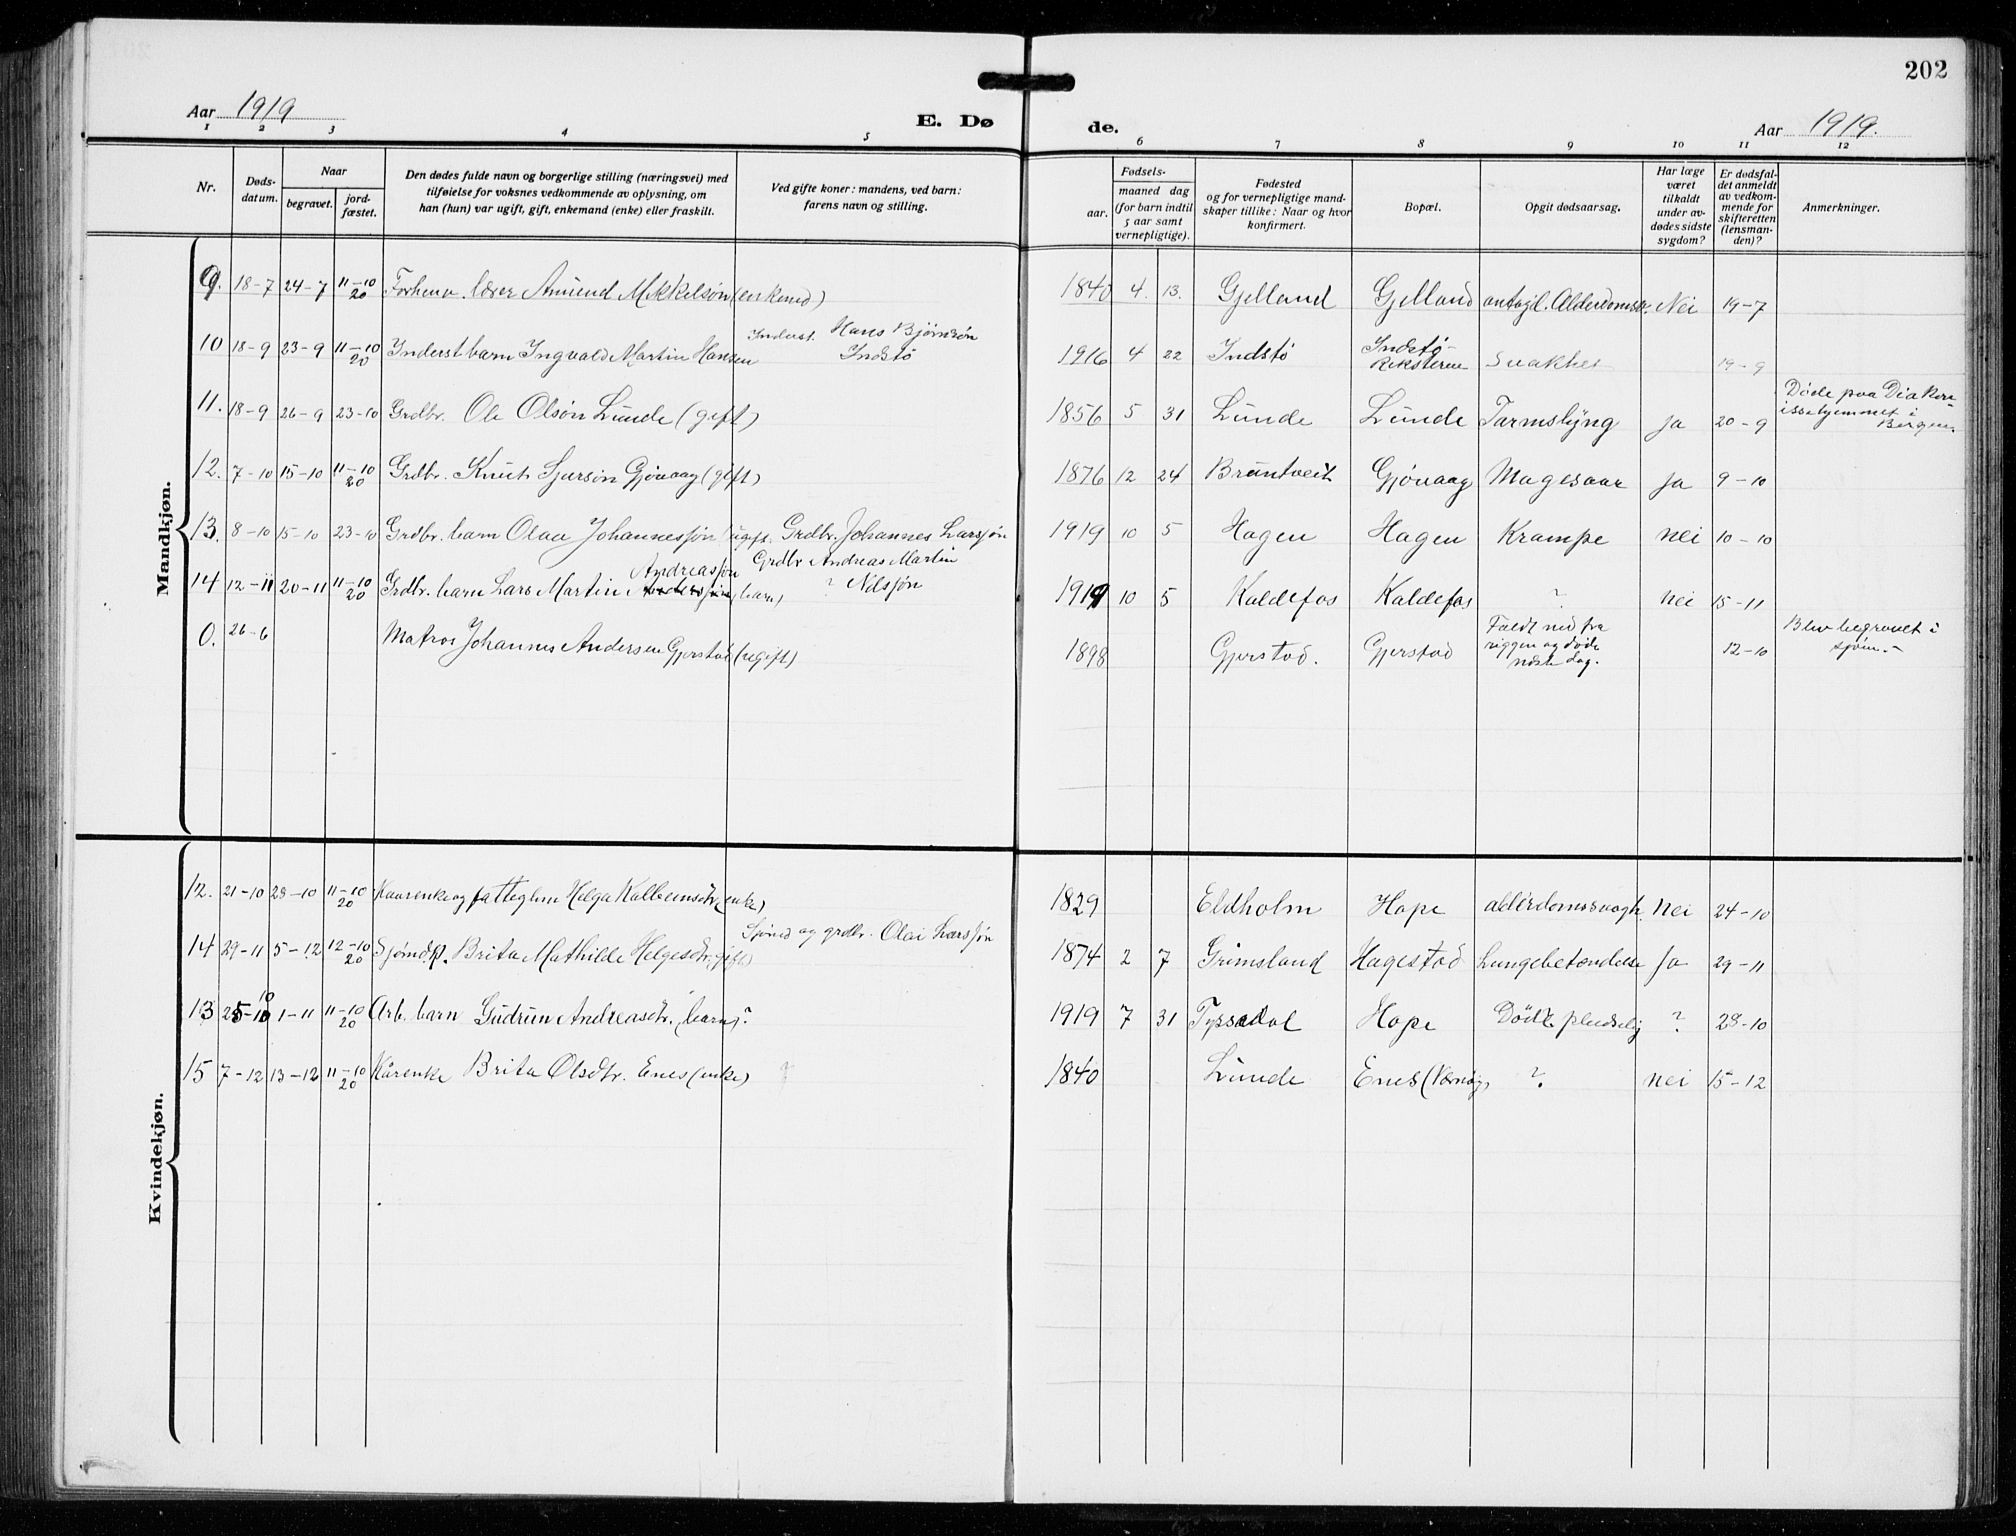 202
Aar 1919
E. Dø
de.
Aar 1919.
1 2 3 4 5 6 7 8 9 10 11 12
Nr.
Døds-
datum.
Naar
begravet.
jord-
fæstet.
Den dødes fulde navn og borgerlige stilling (næringsvei) med
tilføielse for voksnes vedkommende av oplysning, om
han (hun) var ugift, gift, enkemand (enke) eller fraskilt.
Ved gifte koner: mandens, ved barn:
farens navn og stilling.
Fødsels-
aar.
maaned dag
(for barn indtil
5 aar samt
vernepligtige).
Fødested
og for vernepligtige mand-
skaper tillike: Naar og hvor
konfirmert.
Bopæl.
Opgit dødsaarsag.
Har læge
været
tilkaldt
under av-
dødes sidste
sygdom?
Er dødsfal-
det anmeldt
av vedkom-
mende for
skifteretten
(lensman-
den)?
Anmerkninger.
Mandkjøn.
9. 18-7 24-7 11-10 20 Forhenv. lærer Amund Mikkelsøn (enkemd) 1840 4. 13. Gjelland Gjelland antagl. Alderdomssv. Nei 19-7
10 18-9 23-9 11-10 20 Inderst barn Ingvald Martin Hansen Inderst. Hans Bjørnsøn Indstø 1916 4 22 Indstø Indstø- Reksteren Svakhet 19-9
11. 18-9 26-9 23-10 Grdbr. Ole Olsøn Lunde (gift) 1856 5 31 Lunde Lunde Tarmslyng ja 20-9 Døde paa Diakon- issehjemmet i Bergen.
12. 7-10 15-10 11-10 20 Grdbr. Knut Sjursøn Gjøvaag (gift) 1876 12 24 Bruntveit Gjøvaag Magesaar ja 9-10
13. 8-10 15-10 23-10 Grdbr. barn Olaa Johannessøn (ugift. Grdbr. Johannes Larssøn 1919 10 5 Hagen Hagen Krampe nei 10-10
14 12-11 20-11 11-10 20 Grdbr. barn Lars Martin Andreassøn Anderssøn (barn) Grdbr Andreas Martin ? Nilssøn 1919 10 5 Kaldefos Kaldefos ? nei 15-11
0. 26-6 Matros Johannes Andersen Gjerstad (ugift) 1898 Gjerstad. Gjerstad Faldt ned fra riggen og døde næste dag. 12-10 Blev begravet i sjøen.-
Kvindekjøn.
12. 21-10 28-10 11-10 20 Kaarenke og fattiglem Helga Kolbeinsdtr. (enke) 1829 Eldholm Hope alderdomssvagh. Nei 24-10
14 29-11 5-12 12-10 20 Sjømdk. Brita Mathilde Helgesdtr. (gift) Sjømd og grdbr. Olai Larssøn 1874 2 7 Grimsland Hagestad Lungebetændelse Ja 29-11
13 25-10 10 1-11 11-10 20 Arb. barn Gudrun Andreasdtr. (barn) ? 1919 7 31 Tyssedal Hope Døde pludselig ? 28-10
15 7-12 13-12 11-10 20 Kårenke Brita Olsdtr. Enes (enke) ? 1840 Lunde Enes (Varnøy) ? nei 15-12